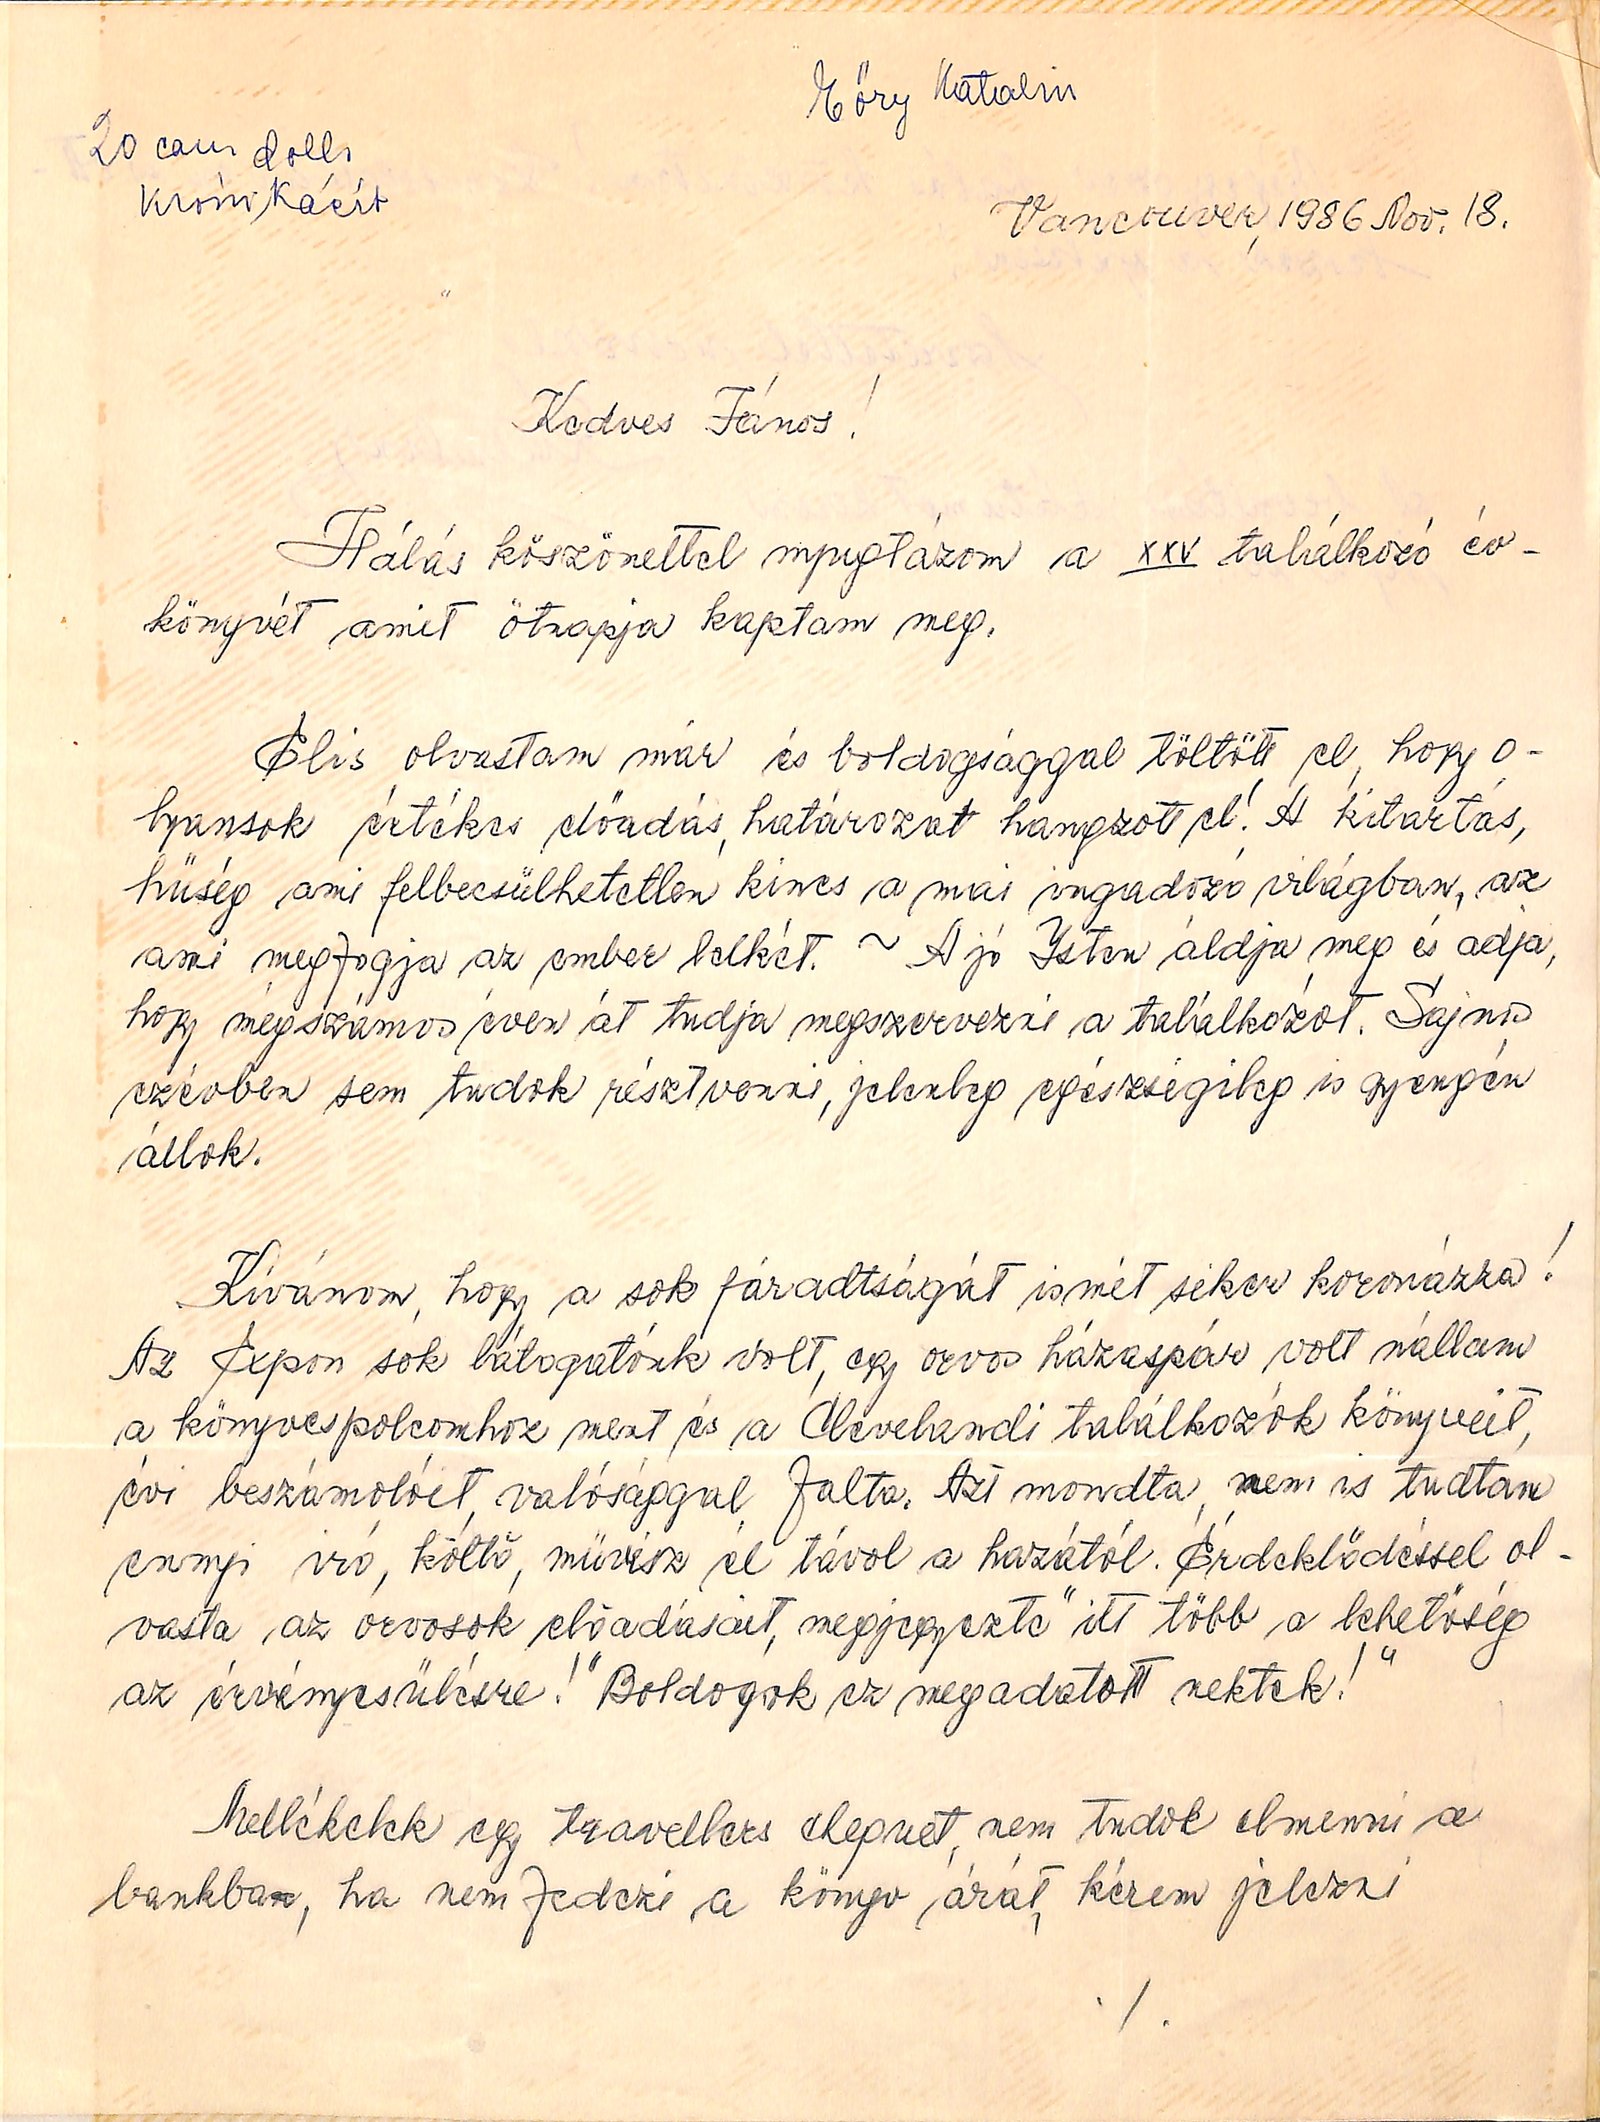 Eőry Katalin
20 can. doll.
Krónikáért
Vancouver, 1986 Nov. 18.
Kedves János!
Hálás köszönettel nyugtázom a XXV találkozó év-
könyvét amit ötnapja kaptam meg.
Elis olvastam már és boldogsággal töltött el, hogy o-
lyansok értékes előadás, határozat hangzott el! A kitartás,
hüség ami felbecsülhetetlen kincs a mai ingadozó világban, az
ami megfogja az ember lelkét. ~ A jó Isten áldja meg és adja,
hogy mégszámos éven át tudja megszervezni a találkozót. Sajnos
ezévben sem tudok résztvenni, jelenleg egészségileg is gyengén
állok.
Kívánom, hogy a sok fáradtságát ismét siker koronázza!
Az Expon sok látogatónk volt, egy orvos házaspár volt nállam
a könyvespolcomhoz ment és a Clevelandi találkozók könyveit,
évi beszámolóit, valósággal falta. Azt mondta, nem is tudtam
ennyi iró, költő, müvész él távol a hazától. Érdeklődéssel ol-
vasta az orvosok előadásait, megjegyezte "itt több a lehetőség
az érvényesülésre!" Boldogok ez megadatott nektek!"
Mellékelek egy travellers chequet, nem tudok elmenni a
bankban, ha nem fedezi a könyv árát, kérem jelezni
./.